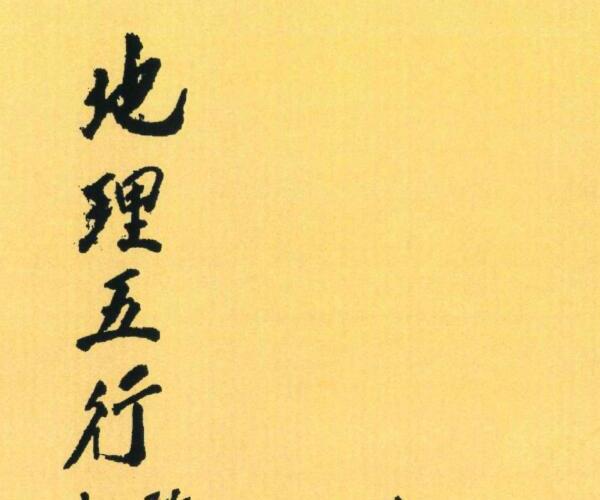 地理五行